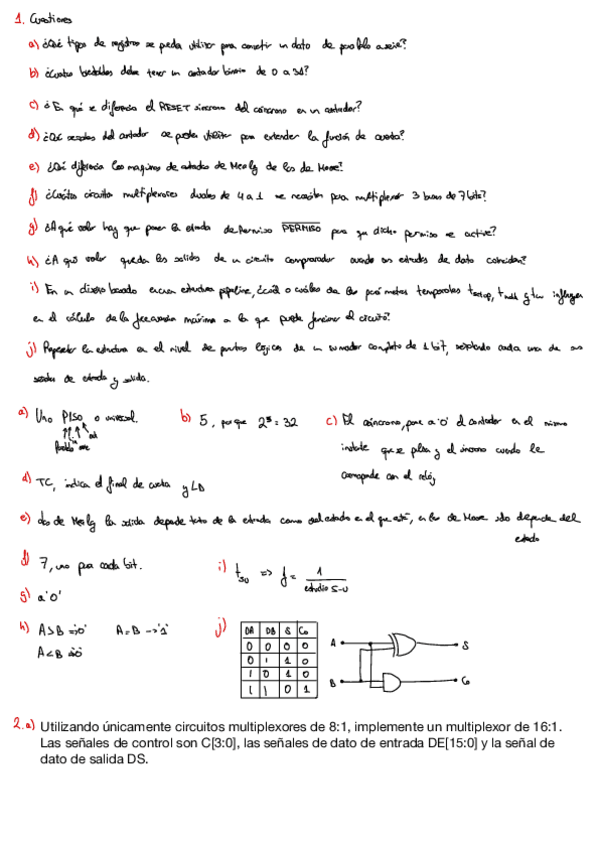 1. Cuestiones
a) ¿Qué tipos de registros se puede utilizar para convertir un dato de paralelo a serie?
b) ¿Cuántos biestables debe tener un contador binario de 0 a 31?
c) ¿En qué se diferencia el RESET síncrono del asíncrono en un contador?
d) ¿Qué señales del contador se puede utilizar para extender la función de cuenta?
e) ¿Qué diferencia las maquinas de estados de Mealy de las de Moore?
f) ¿Cuántos circuitos multiplexores duales de 4 a 1 se necesitan para multiplexar 3 buses de 7 bits?
g) ¿A qué valor hay que poner la entrada de permiso PERMISO para que dicho permiso se active?
h) ¿A qué valor quedan las salidas de un circuito comparador cuando sus entradas de dato coinciden?
i) En un diseño basado en una estructura pipeline, ¿cuál o cuáles de los parámetros temporales tsetup, thold y tco influyen
en el cálculo de la frecuencia máxima a la que puede funcionar el circuito?
j) Representar la estructura en el nivel de puertas lógicas de un sumador completo de 1 bit, señalando cada una de sus
señales de entrada y salida.
a) Uno PISO o universal.
b) 5, porque 2⁵ = 32
c) El asíncrono, pone a '0' el contador en el mismo
instante que se pulsa y el síncrono cuando le
corresponde con el reloj
d) TC, indica el final de cuenta y LD
e) Las de Mealy la salida depende tanto de la entrada como del estado en el que está, en las de Moore solo depende del
estado
f) 7, uno por cada bit.
i) tso => f = 1
g) a '0'
h) A>B => '0' A=B -> '1'
A<B => '0'
j) DA DB S Co
0 0 0 0
0 1 1 0
1 0 1 0
1 1 0 1
A S
B Co
2.a) Utilizando únicamente circuitos multiplexores de 8:1, implemente un multiplexor de 16:1.
Las señales de control son C[3:0], las señales de dato de entrada DE[15:0] y la señal de
dato de salida DS.